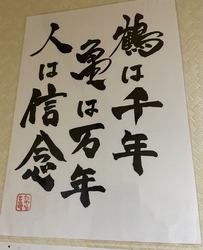 鶴は千年
亀は万年
人は信念